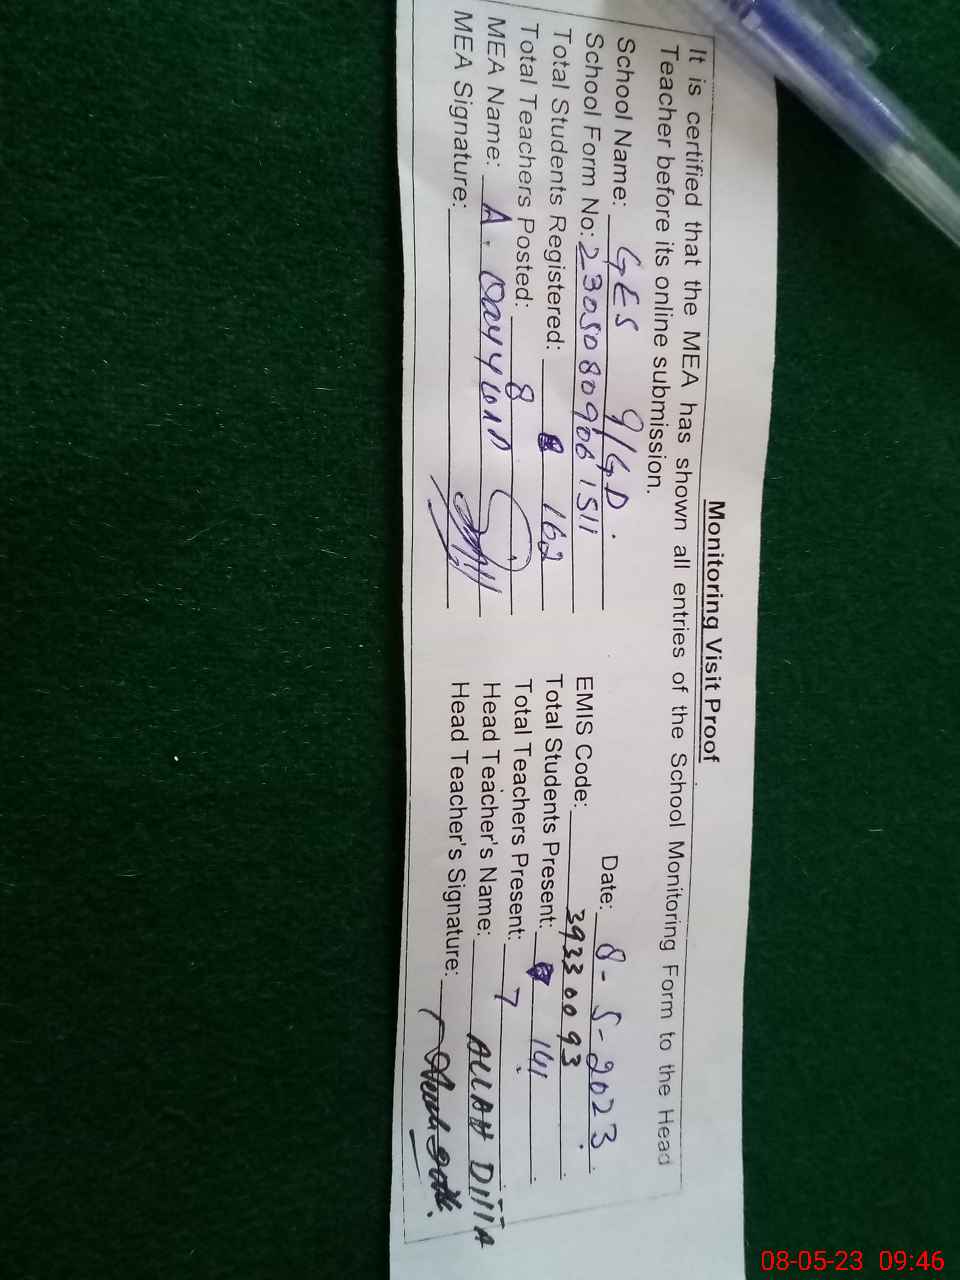 Monitoring Visit Proof
It is certified that the MEA has shown all entries of the School Monitoring Form to the Head
Teacher before its online submission.
School Name: GES 9/GD. Date: 8-5-2023.
School Form No: 23050809061511 EMIS Code: 39330093
Total Students Registered: 162 Total Students Present: 141
Total Teachers Posted: 8 Total Teachers Present: 7
MEA Name: A. Head Teacher's Name: ALLAH DITTA
MEA Signature: Head Teacher's Signature:
08-05-23 09:46